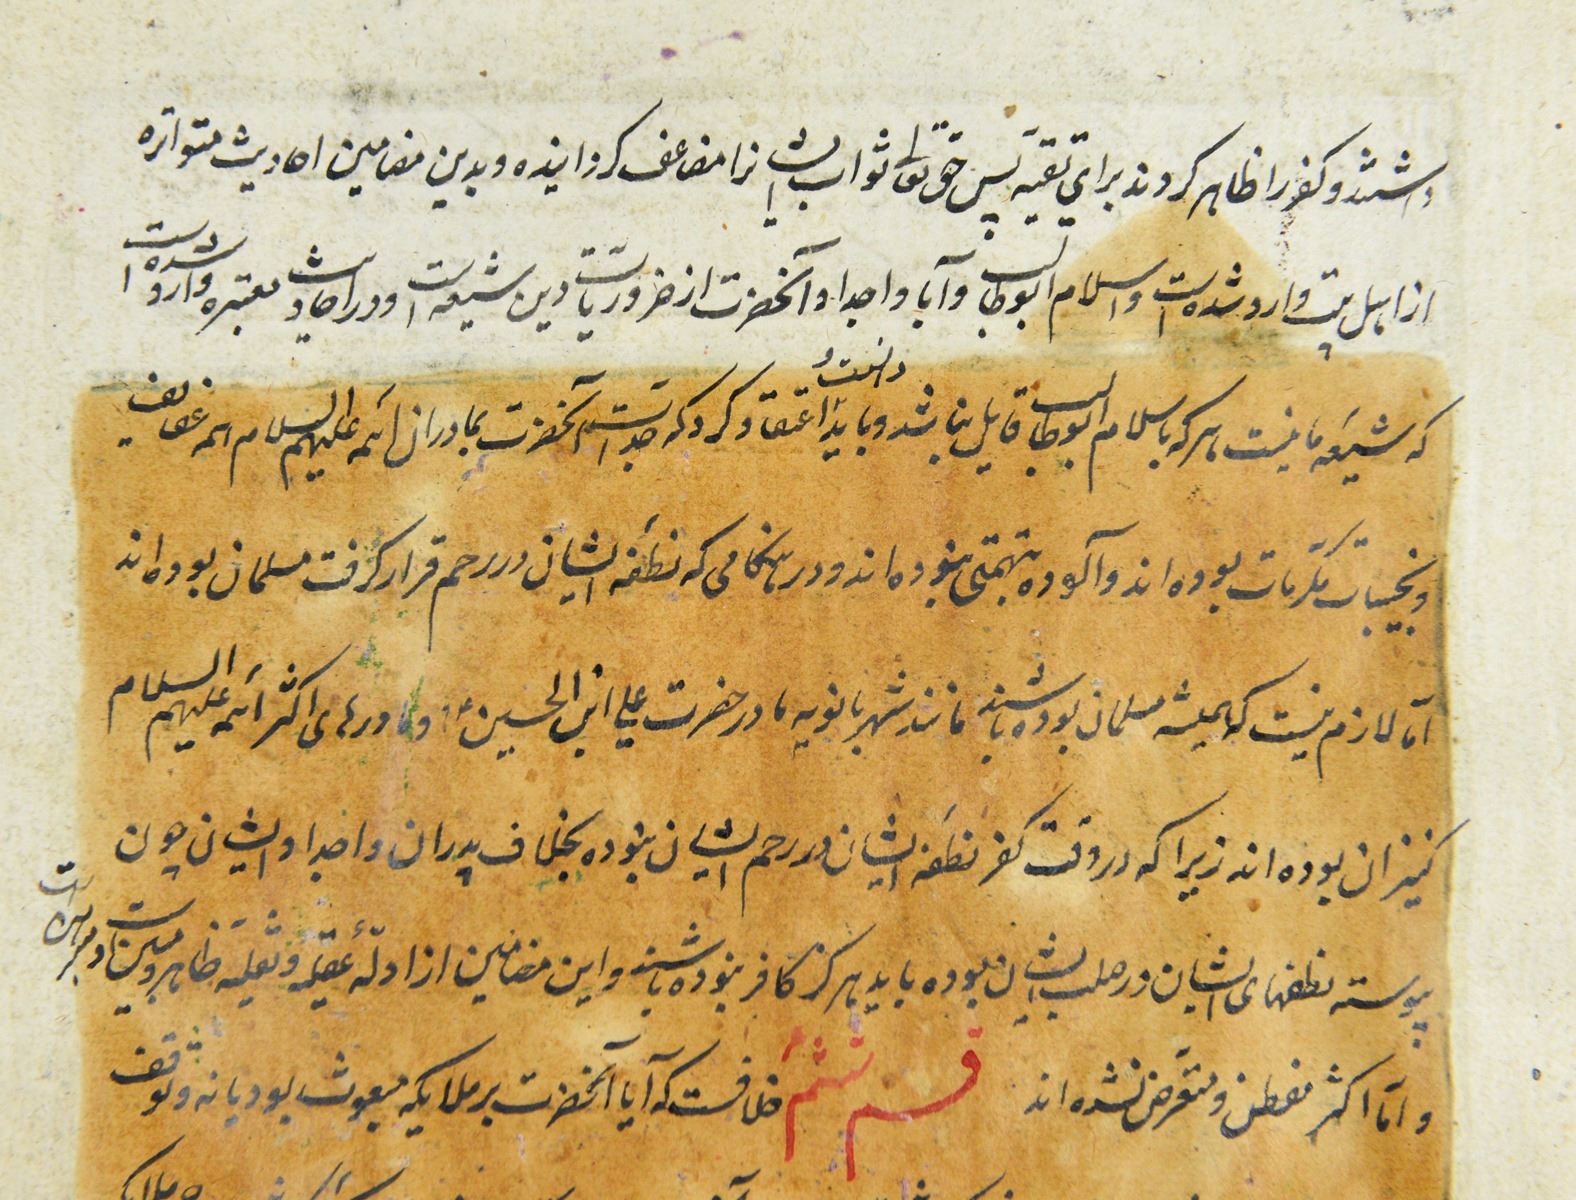 داشتند و کفر را ظاهر کردند برای تقیه پس حق تعالی ثواب ایشانرا مضاعف کردانیده و بدین مضامین احادیث متواتره
از اهل بیت وارد شده است و اسلام ابوطالب و آبا و اجداد آنحضرت از ضروریات دین شیعه است و در احادیث معتبره وارد شده است
که شیعه ما نیست هر که باسلام ابوطالب قایل نباشد و باید دانست و اعتقاد کرد که جدات آنحضرت بمادران ائمه علیهم السلام همه عفایف
و نجیبات مکرمات بوده اند و آلوده بتهمتی نبوده اند و در هنکامی که نطفه ایشان در رحم قرار کرفت مسلمان بوده اند
اما لازم نیست که همیشه مسلمان بوده باشند مانند شهربانویه مادر حضرت علی ابن الحسین ع و مادرهای اکثر ائمه علیهم السلام
کنیزان بوده اند زیرا که در وقت کفر نطفه ایشان در رحم ایشان نبوده بخلاف پدران و اجداد ایشان چون
پیوسته نطفهای ایشان در صلب ایشان بوده باید هرکز کافر نبوده باشند و این مضامین از ادله عقلیه و نقلیه ظاهر و مبین است
و اما اکثر متفطن و متعرض نشده اند قسم ششم خلافست که آیا آنحضرت بر ملایکه مبعوث بود یا نه و توقف